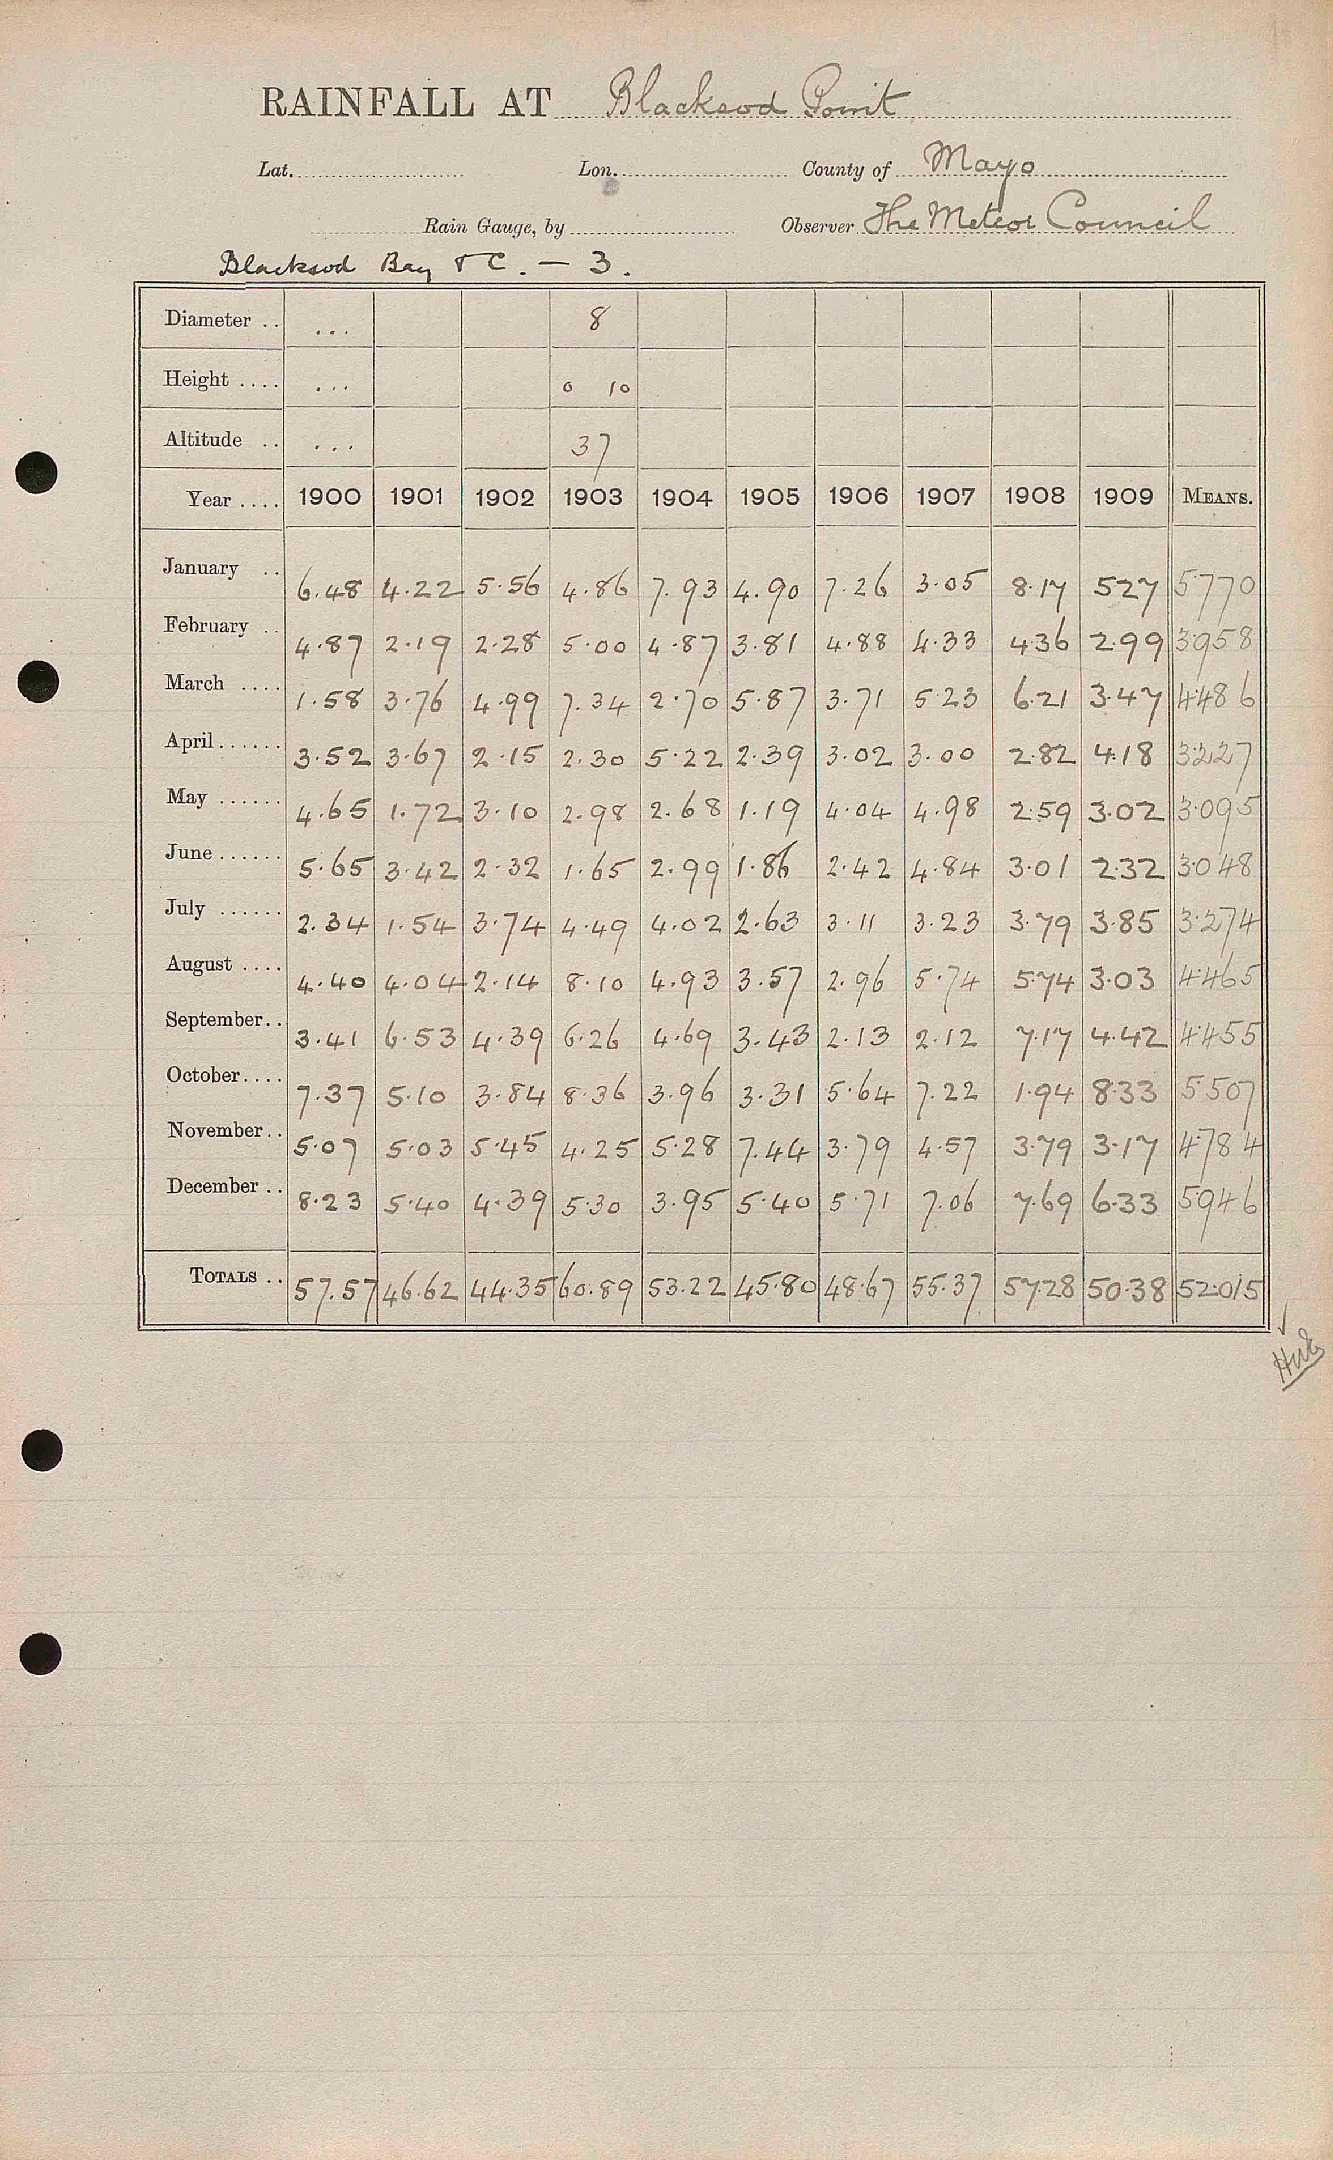 RAINFALL AT Blacksod Point
Lat. Lon. County of Mayo
Rain Gauge, by Observer The Meteor Council
Blacksod Bay & C. — 3.
Diameter .. ... 8
Height .... ... 0 10
Altitude .. ... 37
Year .... 1900 1901 1902 1903 1904 1905 1906 1907 1908 1909 MEANS.
January .. 6.48 4.22 5.56 4.86 7.93 4.90 7.26 3.05 8.17 5.27 5.770
February .. 4.87 2.19 2.28 5.00 4.87 3.81 4.88 4.33 4.36 2.99 3.958
March .... 1.58 3.76 4.99 7.34 2.70 5.87 3.71 5.23 6.21 3.47 4.486
April...... 3.52 3.67 2.15 2.30 5.22 2.39 3.02 3.00 2.82 4.18 3.227
May ...... 4.65 1.72 3.10 2.98 2.68 1.19 4.04 4.98 2.59 3.02 3.095
June...... 5.65 3.42 2.32 1.65 2.99 1.86 2.42 4.84 3.01 2.32 3.048
July ...... 2.34 1.54 3.74 4.49 4.02 2.63 3.11 3.23 3.79 3.85 3.274
August .... 4.40 4.04 2.14 8.10 4.93 3.57 2.96 5.74 5.74 3.03 4.465
September.. 3.41 6.53 4.39 6.26 4.69 3.43 2.13 2.12 7.17 4.42 4.455
October.... 7.37 5.10 3.84 8.36 3.96 3.31 5.64 7.22 1.94 8.33 5.507
November.. 5.07 5.03 5.45 4.25 5.28 7.44 3.79 4.57 3.79 3.17 4.784
December.. 8.23 5.40 4.39 5.30 3.95 5.40 5.71 7.06 7.69 6.33 5.946
TOTALS .. 57.57 46.62 44.35 60.89 53.22 45.80 48.67 55.37 57.28 50.38 52.015